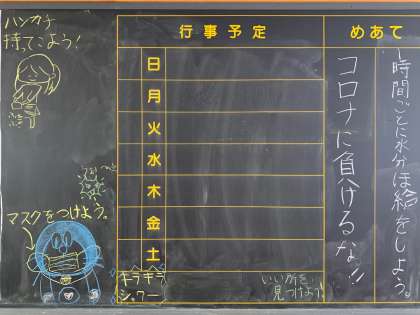 ハンカチ
持ってこよう!
ふきふき
マスクをつけよう。
行事予定
日
月
火
水
木
金
土
キラキラ
シャワー
いい所を
見つけよう
めあて
一時間ごとに水分ほ給をしよう。
コロナに負けるな!!